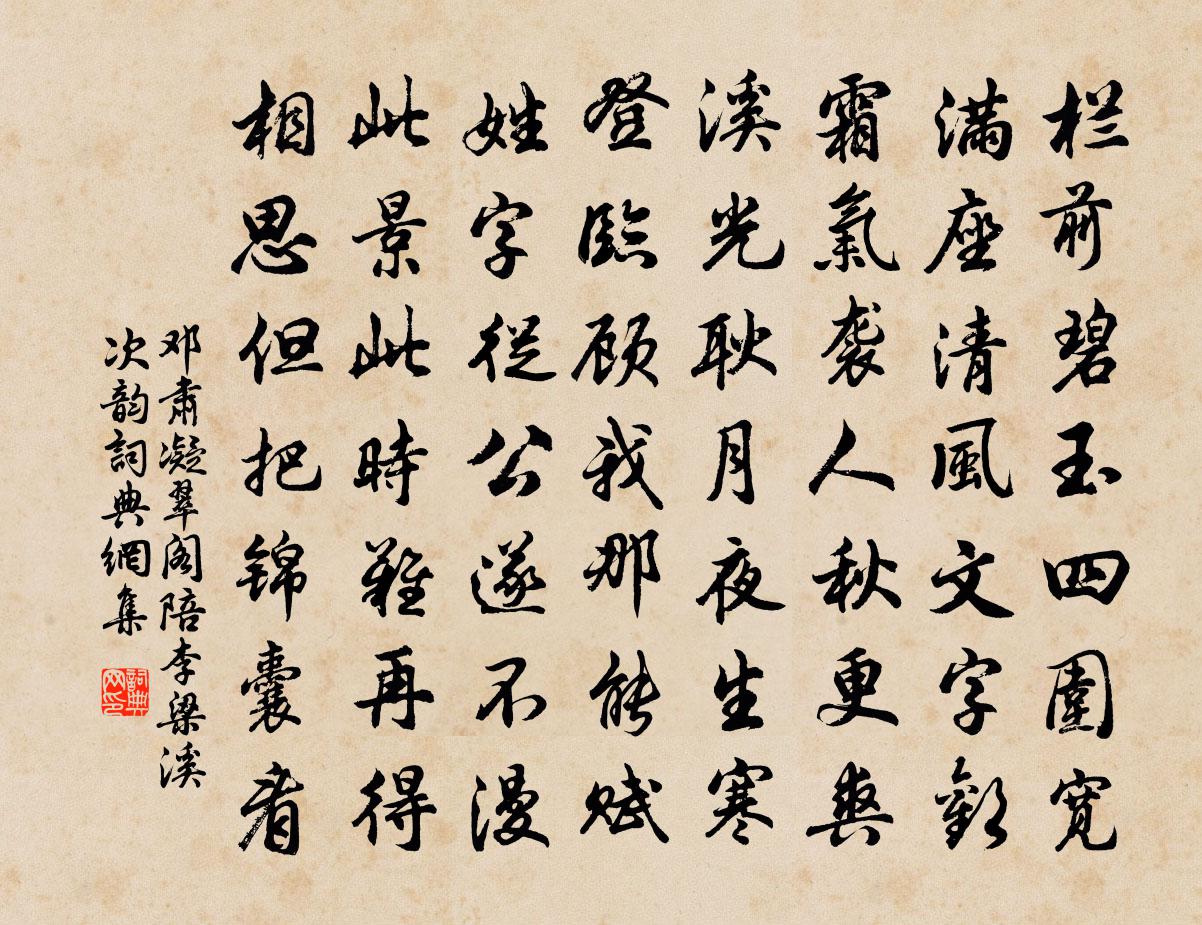 栏前碧玉四圍寬
满座清風文字歡
霜氣袭人秋更爽
溪光耿月夜生寒
登臨顾我那能赋
姓字從公遂不漫
此景此時難再得
相思但把锦囊看
邓肃凝翠阁陪李梁溪
次韵詞典網集
詞典网印